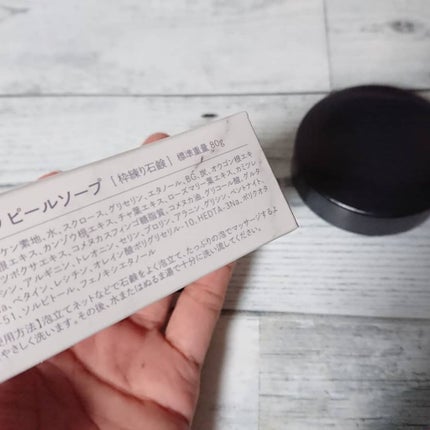 ピールソープ [枠練り石鹸] 標準重量 80g
ケン素地、水、スクロース、グリセリン、エタノール、BG、炭、オウゴン根エキ
根エキス、カンゾウ根エキス、チャ葉エキス、ローズマリー葉エキス、カミツレ
ツボクサエキス、コメヌカスフィンゴ糖脂質、コメヌカ油、グリコール酸、グルタ
アルギニン、トレオニン、セリン、プロリン、アラニン、グリシン、ベントナイト、
ベタイン、レシチン、オレイン酸ポリグリセリル-10、HEDTA-3Na、ポリクオタ
-51、ソルビトール、フェノキシエタノール
使用方法】泡立てネットなどで石鹸をよく泡立て、たっぷりの泡でマッサージするよ
やさしく洗います。その後、水またはぬるま湯で十分に洗い流してください。